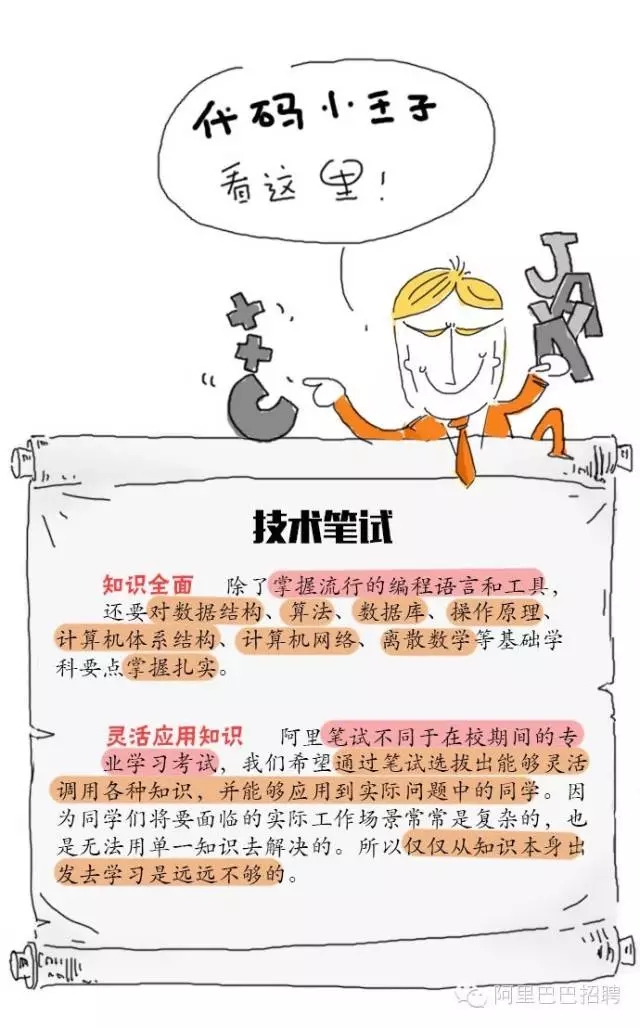 代码小王子
看这里!
JAVA
C++
技术笔试
知识全面 除了掌握流行的编程语言和工具,
还要对数据结构、算法、数据库、操作原理、
计算机体系结构、计算机网络、离散数学等基础学
科要点掌握扎实。
灵活应用知识 阿里笔试不同于在校期间的专
业学习考试，我们希望通过笔试选拔出能够灵活
调用各种知识，并能够应用到实际问题中的同学。因
为同学们将要面临的实际工作场景常常是复杂的，也
是无法用单一知识去解决的。所以仅仅从知识本身出
发去学习是远远不够的。
阿里巴巴招聘